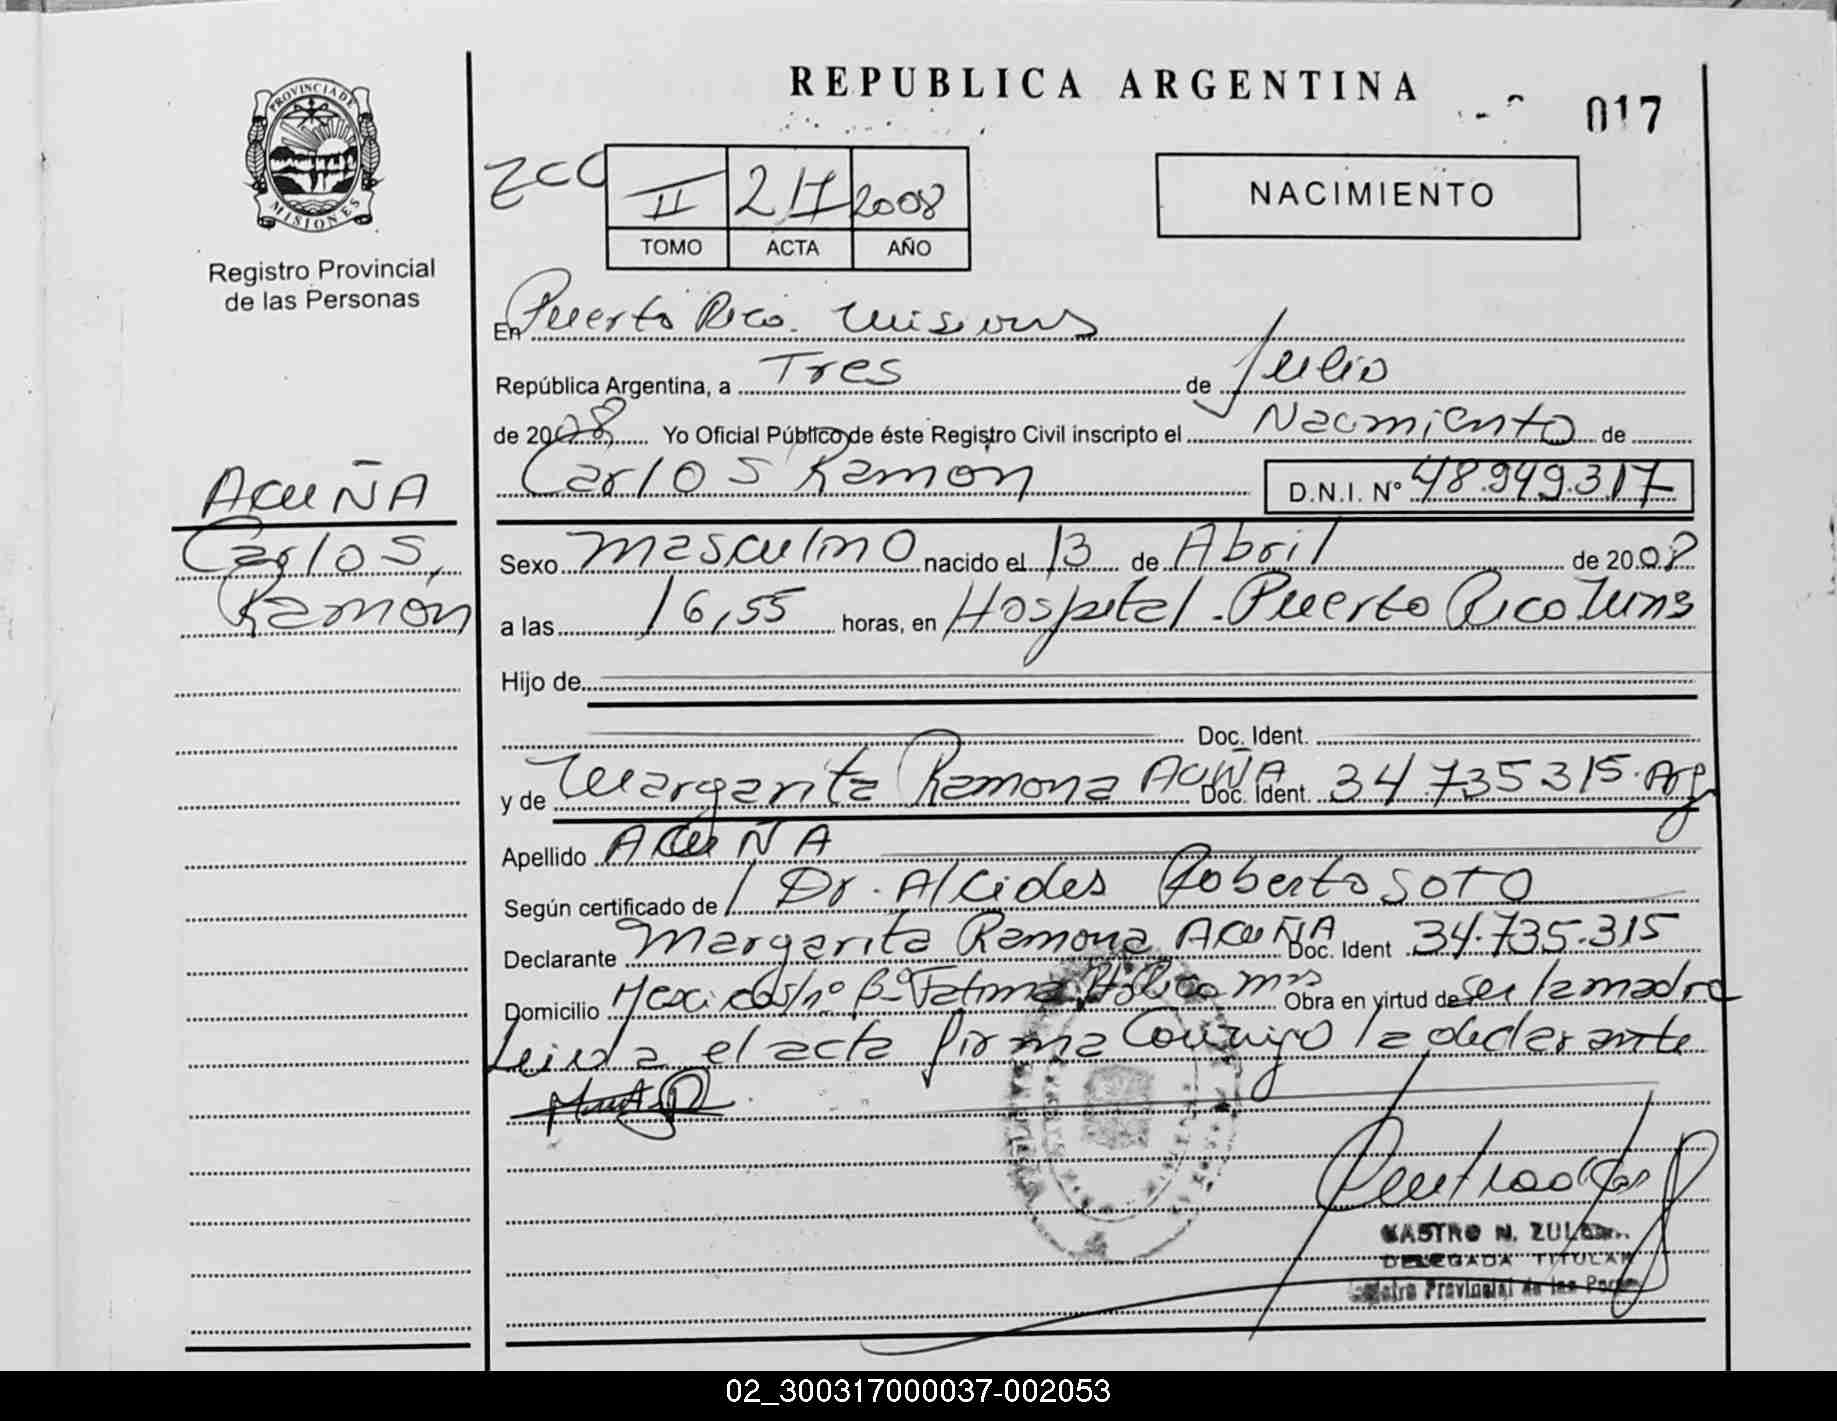 REPUBLICA ARGENTINA
017
PROVINCIA DE
MISIONES
Registro Provincial
de las Personas
II 217 2008
TOMO ACTA AÑO
NACIMIENTO
En Puerto Rico. Misiones
República Argentina, a Tres de Julio
de 2008 Yo Oficial Público de éste Registro Civil inscripto el Nacimiento de
Carlos Ramon D.N.I. Nº 48.949.317
ACUÑA
Carlos,
Ramon
Sexo masculino nacido el 13 de Abril de 2008
a las 16,55 horas, en Hospital - Puerto Rico Mnes
Hijo de
Doc. Ident.
y de Margarita Ramona ACUÑA Doc. Ident. 34.735315. Arg
Apellido ACUÑA
Según certificado de Dr. Alcides Roberto SOTO
Declarante Margarita Ramona ACUÑA Doc. Ident 34.735.315
Domicilio B.º Fatima Obra en virtud de ser la madre
Leida el acta firma Conmigo la declarante
CASTRO N.
DELEGADA TITULAR
Registro Provincial de las
02_300317000037-002053